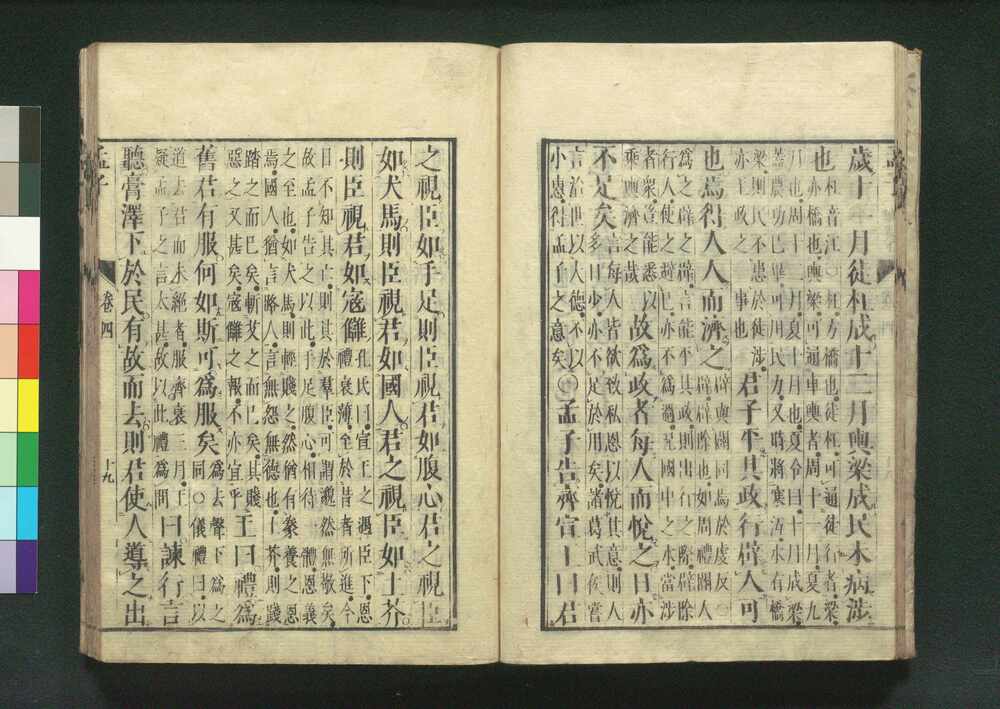 歲十一月徒杠成十二月輿梁成民未病涉
也
杠音江○杠方橋也徒杠可通徒行者梁
亦橋也輿梁可通車輿者周十一月夏九
月也周十二月夏十月也夏令曰十月成梁
蓋農功已畢可用民力又時將寒沍水有橋
梁則民不患於徒涉
亦王政之一事也
君子平其政行辟人可
也焉得人人而濟之
辟與闢同焉於虔反○
辟辟除也如周禮閽人
為之辟之辟言能平其政則出行之際辟除
行人使之避已亦不為過況國中之水當涉
者衆豈能悉以
乘輿濟之哉
故為政者每人而悅之日亦
不足矣
言每人皆欲致私恩以悅其意則人
多日少亦不足於用矣諸葛武侯嘗
言治世以大德不以
小惠得孟子之意矣
○孟子告齊宣王曰君
之視臣如手足則臣視君如腹心君之視臣
如犬馬則臣視君如國人君之視臣如土芥
則臣視君如寇讎
孔氏曰宣王之遇臣下恩
禮衰薄至於昔者所進今
日不知其亡則其於羣臣可謂邈然無敬矣
故孟子告之以此手足腹心相待一體恩義
之至也如犬馬則輕賤之然猶有豢養之恩
焉國人猶言路人言無怨無德也土芥則踐
踏之而已矣斬艾之而已矣其賤
惡之又甚矣寇讎之報不亦宜乎
王曰禮為
舊君有服何如斯可為服矣
為去聲下為之
同○儀禮曰以
道去君而未絕者服齊衰三月王
疑孟子之言太甚故以此禮為問
曰諫行言
聽膏澤下於民有故而去則君使人導之出
孟子
卷四
十九